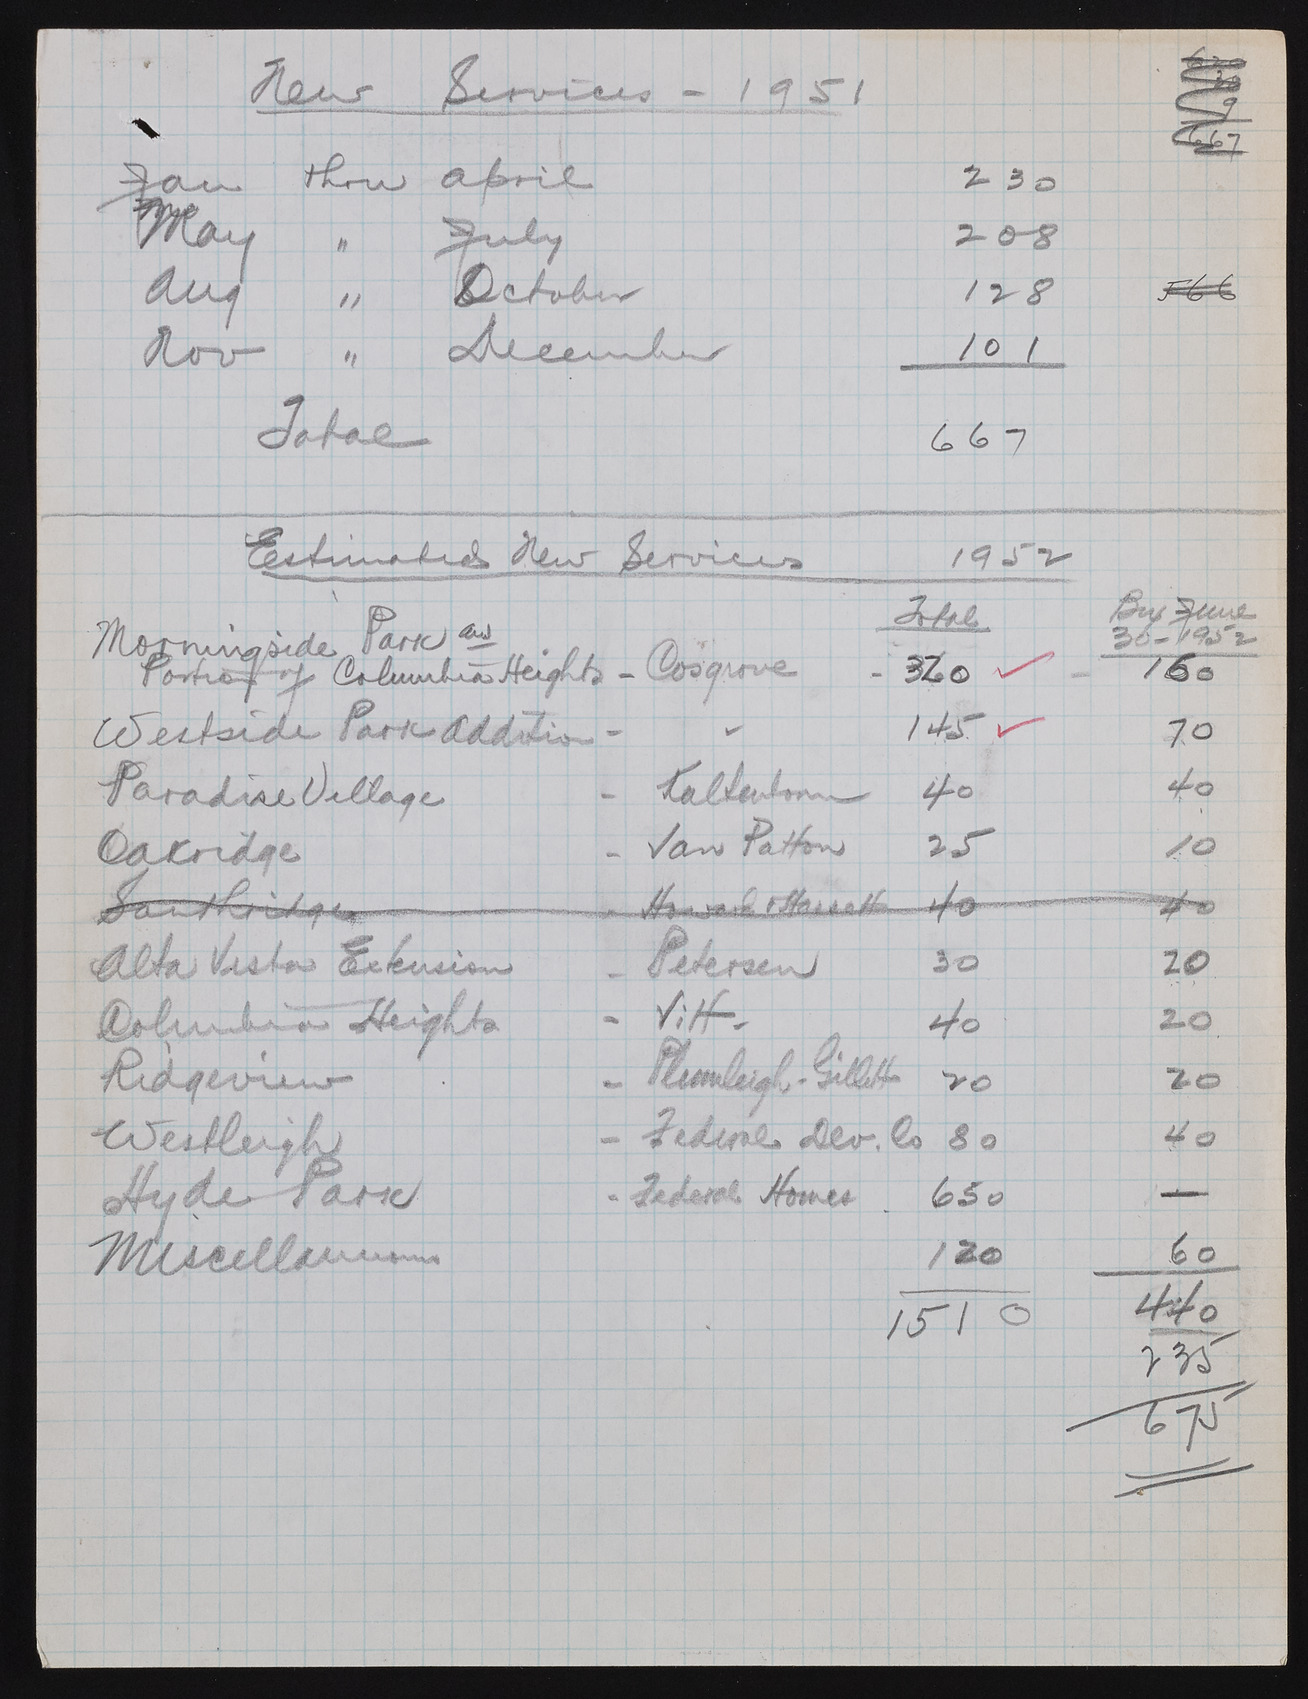 New Services - 1951
667
Jan thru April 230
May " July 208
Aug " October 128 566
Nov " December 101
Total 667
Estimated New Services 1952
Total By June 30-1952
Morningside Park and
Portion of Columbia Heights - Cosgrove - 360 ✓ - 160
Westside Park Addition - " 145 ✓ 70
Paradise Village - Kaltenborn 40 40
Oakridge - Van Patton 25 10
Southridge - Howard & Hassett 40 40
Alta Vista Extension - Petersen 30 20
Columbia Heights - Vitt - 40 20
Ridgeview - Plumleigh - Gillett 20 20
Westleigh - Federal Dev. Co 80 40
Hyde Park - Federal Homes 650 —
Miscellaneous 120 60
1510 440
235
675